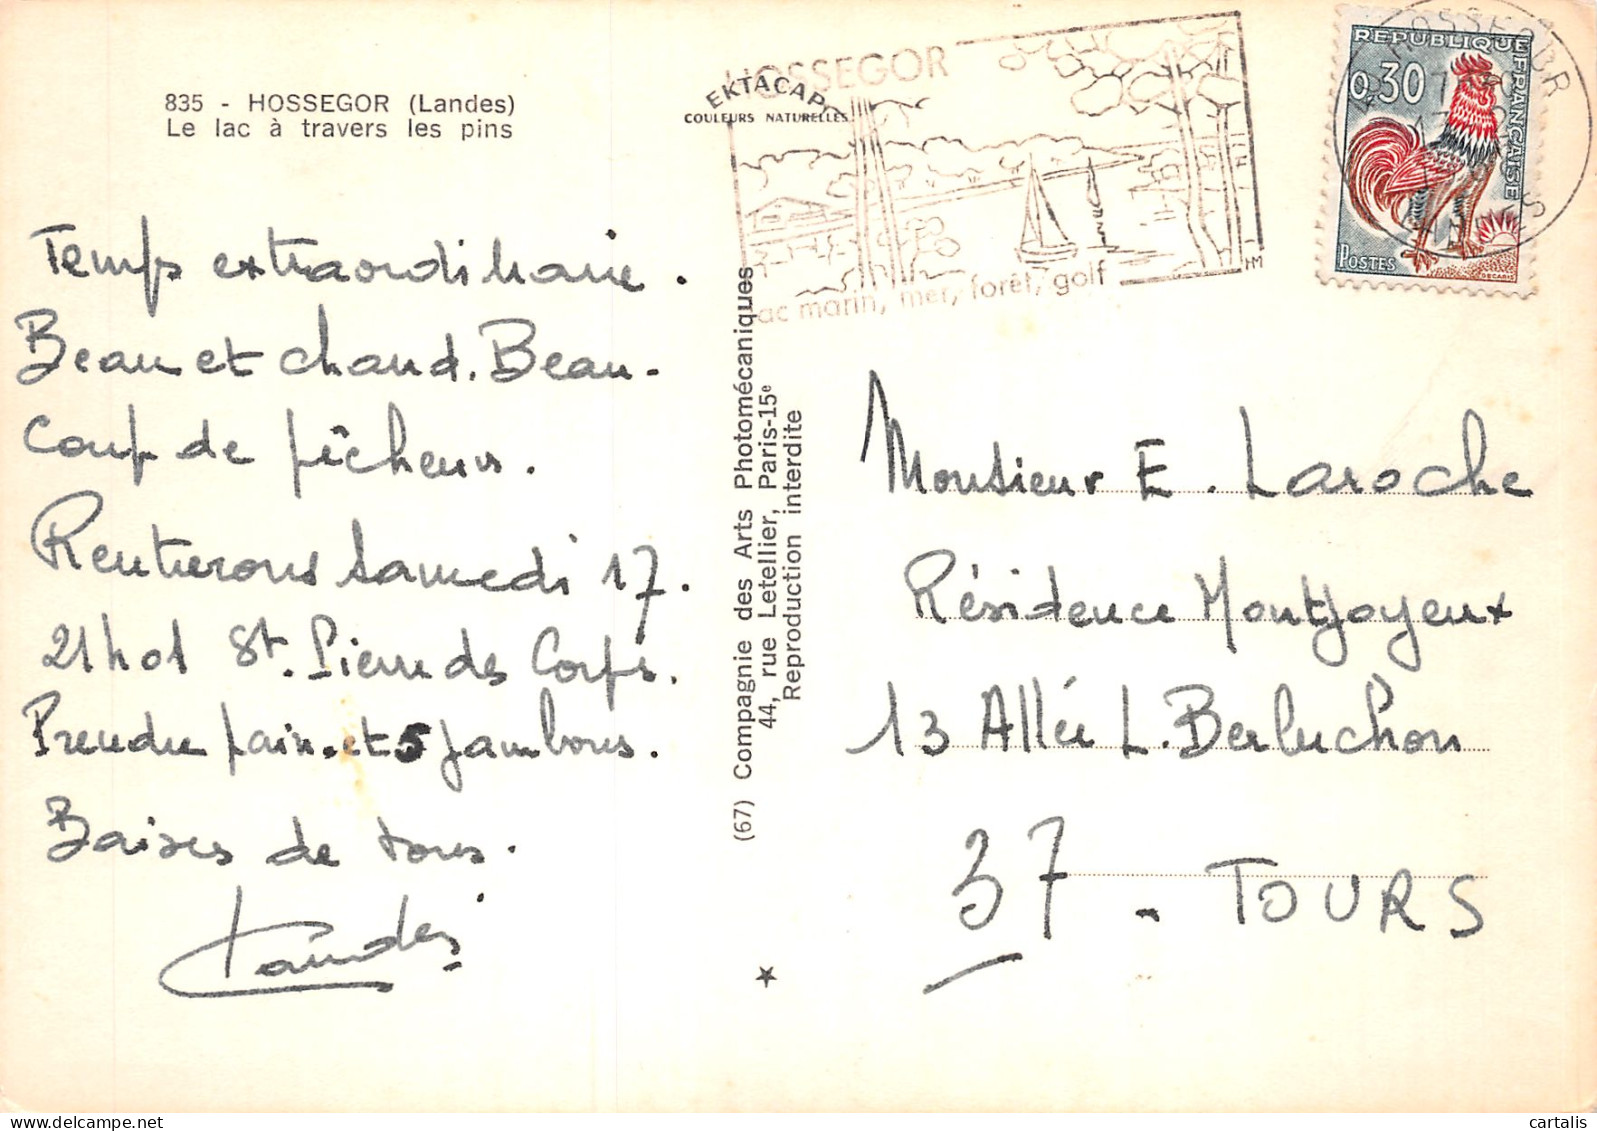 835 - HOSSEGOR (Landes)
Le lac à travers les pins
Temps extraordinaire.
Beau et chaud. Beau-
coup de pêcheurs.
Rentrerons samedi 17.
21h01 St. Pierre des Corps.
Prendre pain et 5 jambons.
Baises de tous.
EKTACAP
COULEURS NATURELLES
HOSSEGOR
lac marin, mer, forêt, golf
HM
(67) Compagnie des Arts Photomécaniques
44, rue Letellier, Paris-15e
Reproduction interdite
REPUBLIQUE FRANÇAISE
0,30
POSTES
DECARIS
HOSSEGOR
LANDES
Monsieur E. Laroche
Résidence Montjoyeux
13 Allée L. Berluchon
37 - TOURS
cartalis